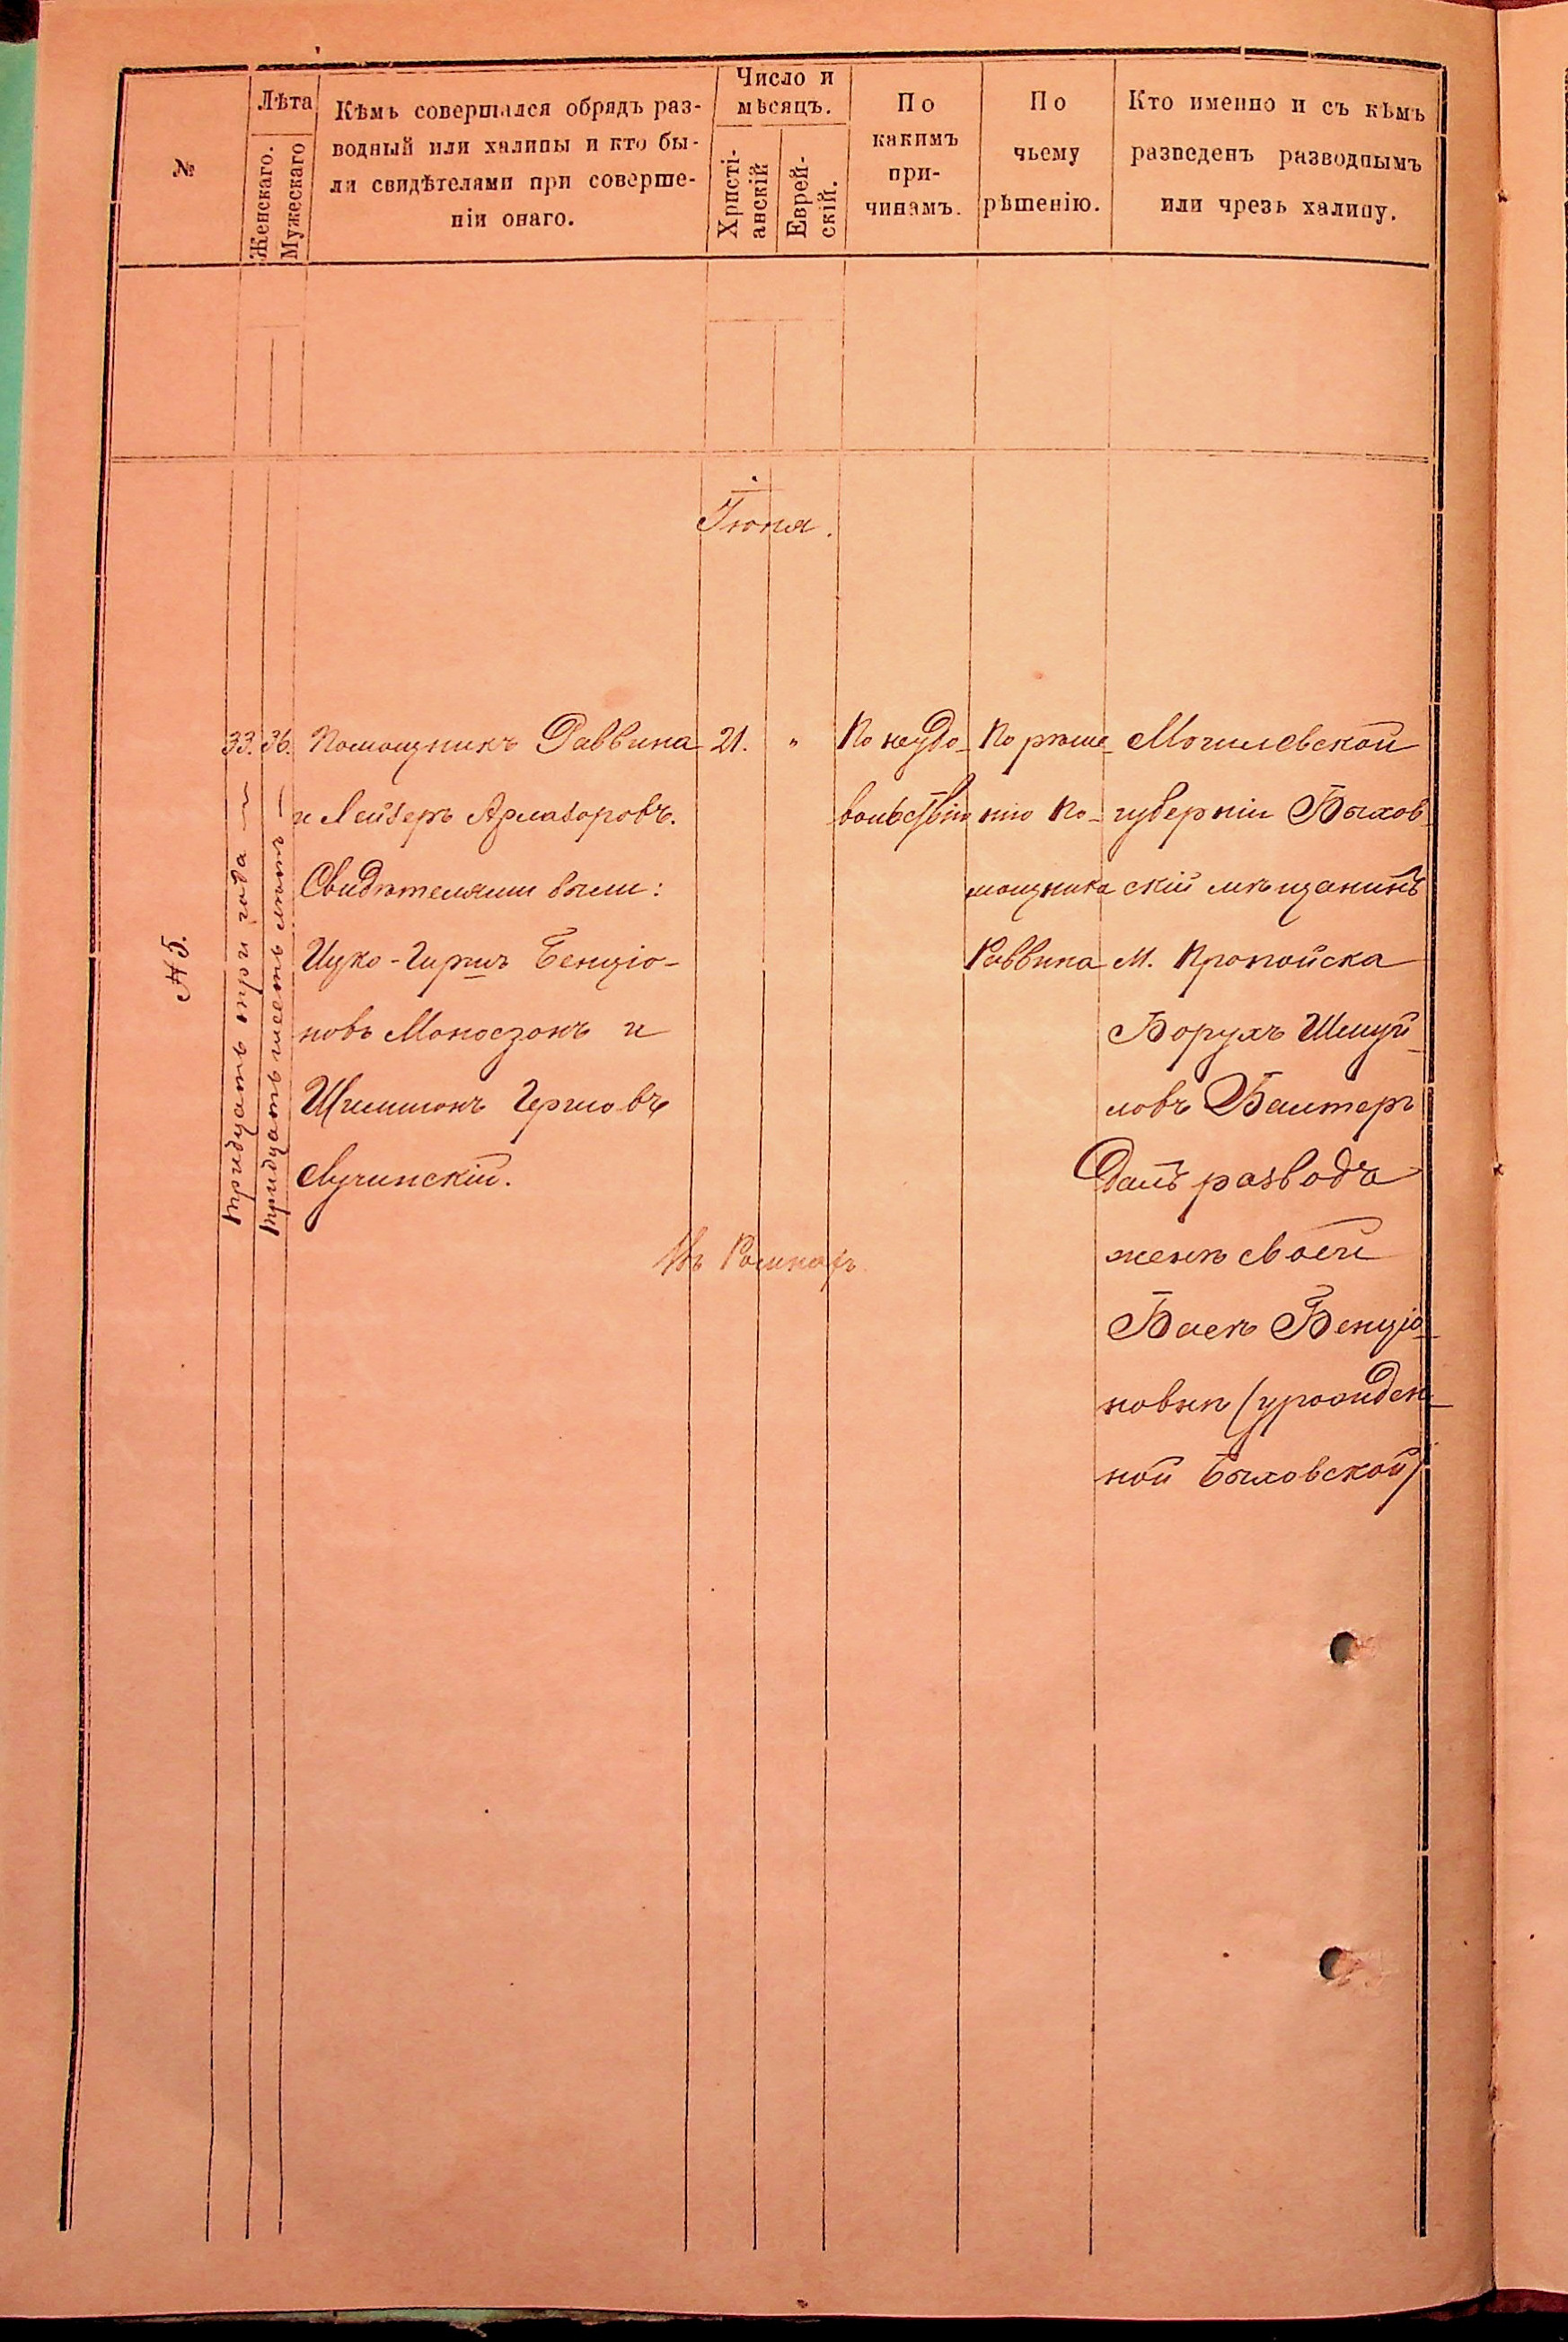 №
Лѣта
Женскаго.
Мужескаго
Кѣмъ совершался обрядъ раз-
водный или халицы и кто бы-
ли свидѣтелями при соверше-
ніи онаго.
Число и
мѣсяцъ.
Христі-
анскій
Еврей-
скій.
По
какимъ
при-
чинамъ.
По
чьему
рѣшенію.
Кто именно и съ кѣмъ
разведенъ разводнымъ
или чрезъ халицу.
Іюня.
№ 5.
33.
тридцать три года
36.
тридцать шесть лѣтъ
Помощникъ Раввина
и Лейзеръ
Свидѣтелями были:
Ицко-Гиршъ Бенціо-
новъ Моносзонъ и
Шлимонъ Гершовъ
Лучинскій.
21.
"
По неудо-
вольствію
По рѣше-
нію По-
мощника
Раввина
Могилевской
губерніи Быхов-
скій мѣщанинъ
М. Пропойска
Борухъ Шмуй-
ловъ
Далъ разводъ
женѣ своей
Басѣ Бенціо-
новнѣ (урожден-
ной Быховской)
Въ